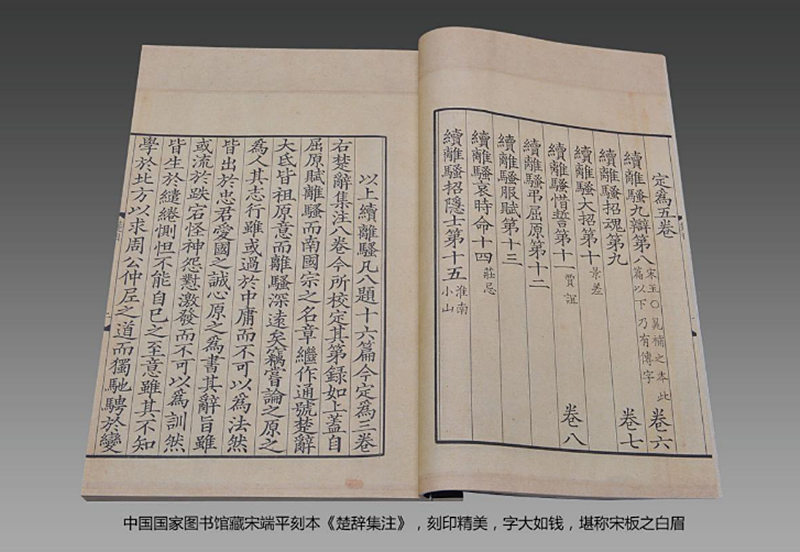 定為五卷
續離騷九辯第八 宋玉〇晁補之本此篇以下乃有傳字 卷六
續離騷招魂第九 卷七
續離騷大招第十 景差
續離騷惜誓第十一 賈誼 卷八
續離騷弔屈原第十二
續離騷服賦第十三
續離騷哀時命十四 莊忌
續離騷招隱士第十五 淮南小山
以上續離騷凡八題十六篇今定為三卷
右楚辭集注八卷今所校定其第錄如上蓋自
屈原賦離騷而南國宗之名章繼作通號楚辭
大氐皆祖原意而離騷深遠矣竊嘗論之原之
為人其志行雖或過於中庸而不可以為法然
皆出於忠君愛國之誠心原之為書其辭旨雖
或流於跌宕怪神怨懟激發而不可以為訓然
皆生於繾綣惻怛不能自已之至意雖其不知
學於北方以求周公仲尼之道而獨馳騁於變
中国国家图书馆藏宋端平刻本《楚辞集注》，刻印精美，字大如钱，堪称宋板之白眉